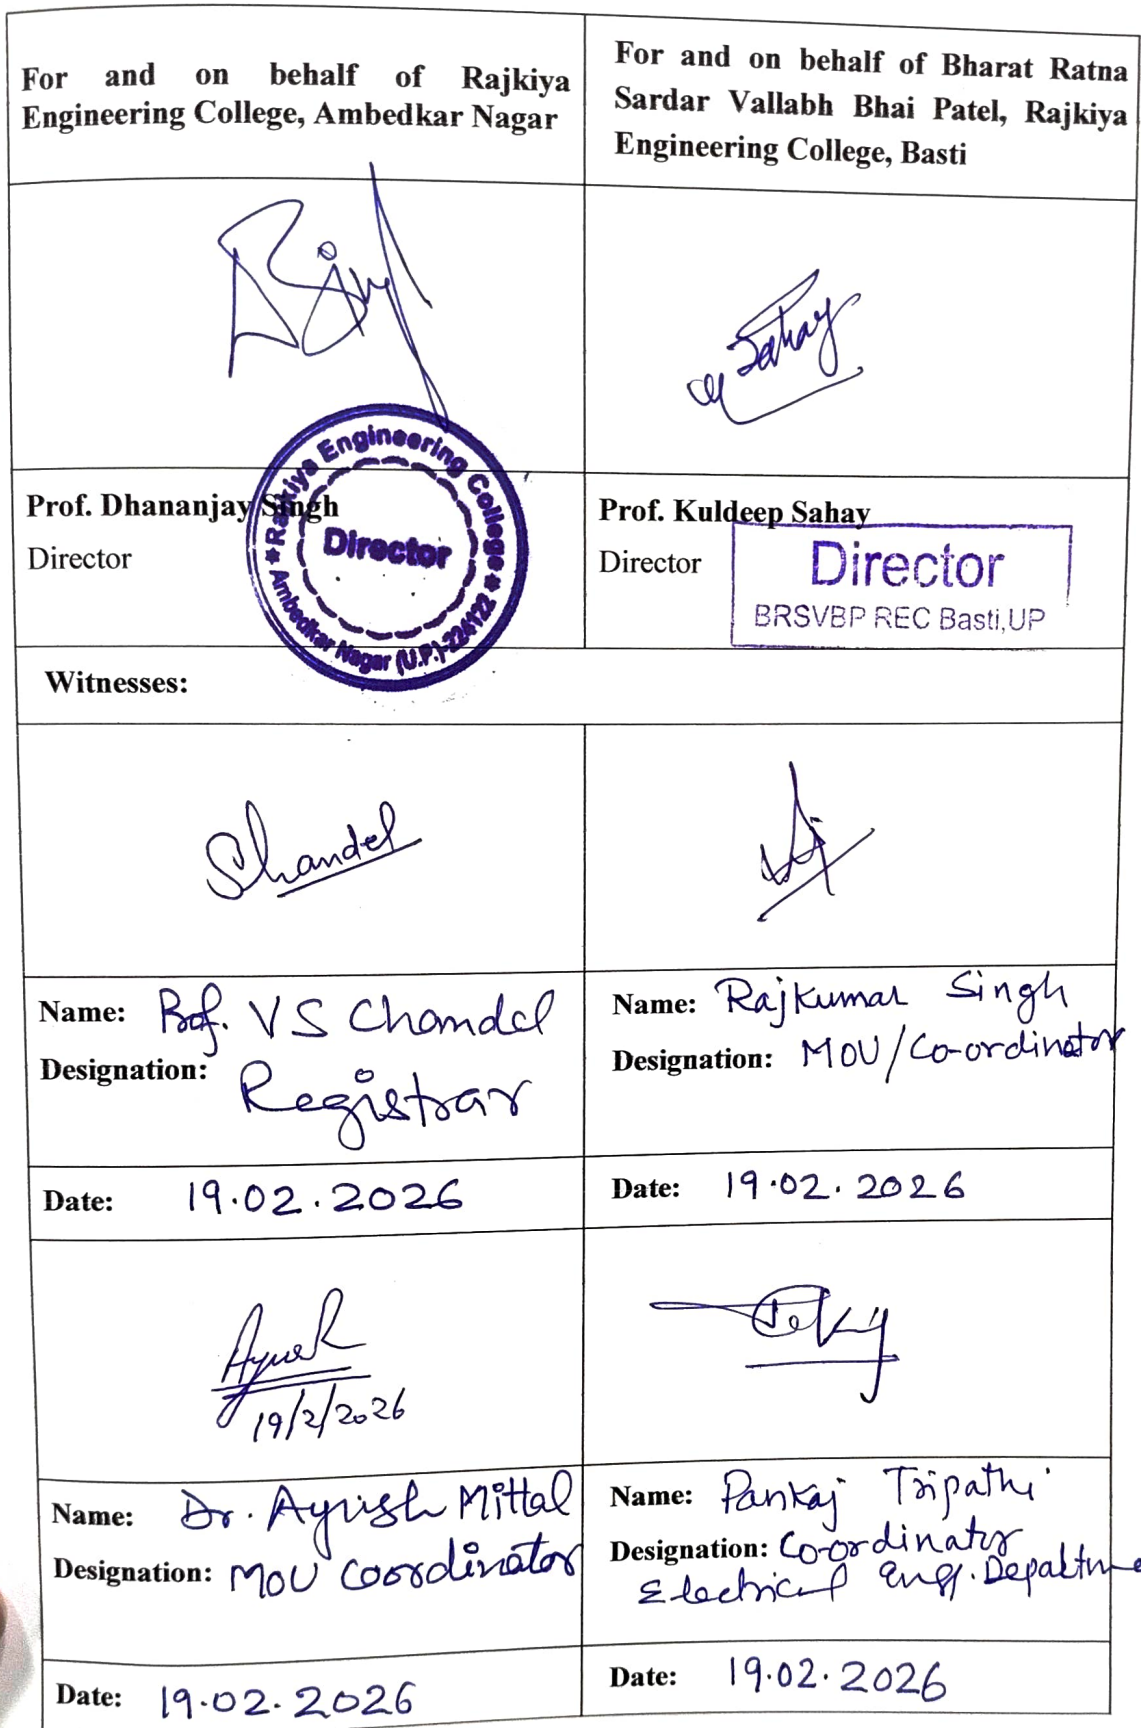 For and on behalf of Rajkiya
Engineering College, Ambedkar Nagar
For and on behalf of Bharat Ratna
Sardar Vallabh Bhai Patel, Rajkiya
Engineering College, Basti
Sahay
Prof. Dhananjay Singh
Director
Rajkiya Engineering College
Director
Ambedkar Nagar (U.P.)-224122
Prof. Kuldeep Sahay
Director
Director
BRSVBP REC Basti,UP
Witnesses:
Chandel
Name: Prof. VS Chandel
Designation:
Registrar
Name: Rajkumar Singh
Designation: MOU/Co-ordinator
Date: 19.02.2026
Date: 19.02.2026
Ayush
19/2/2026
Name: Dr. Ayush Mittal
Designation: MOU Coordinator
Name: Pankaj Tripathi
Designation: Co-ordinator
Electrical Engg. Departme
Date: 19.02.2026
Date: 19.02.2026